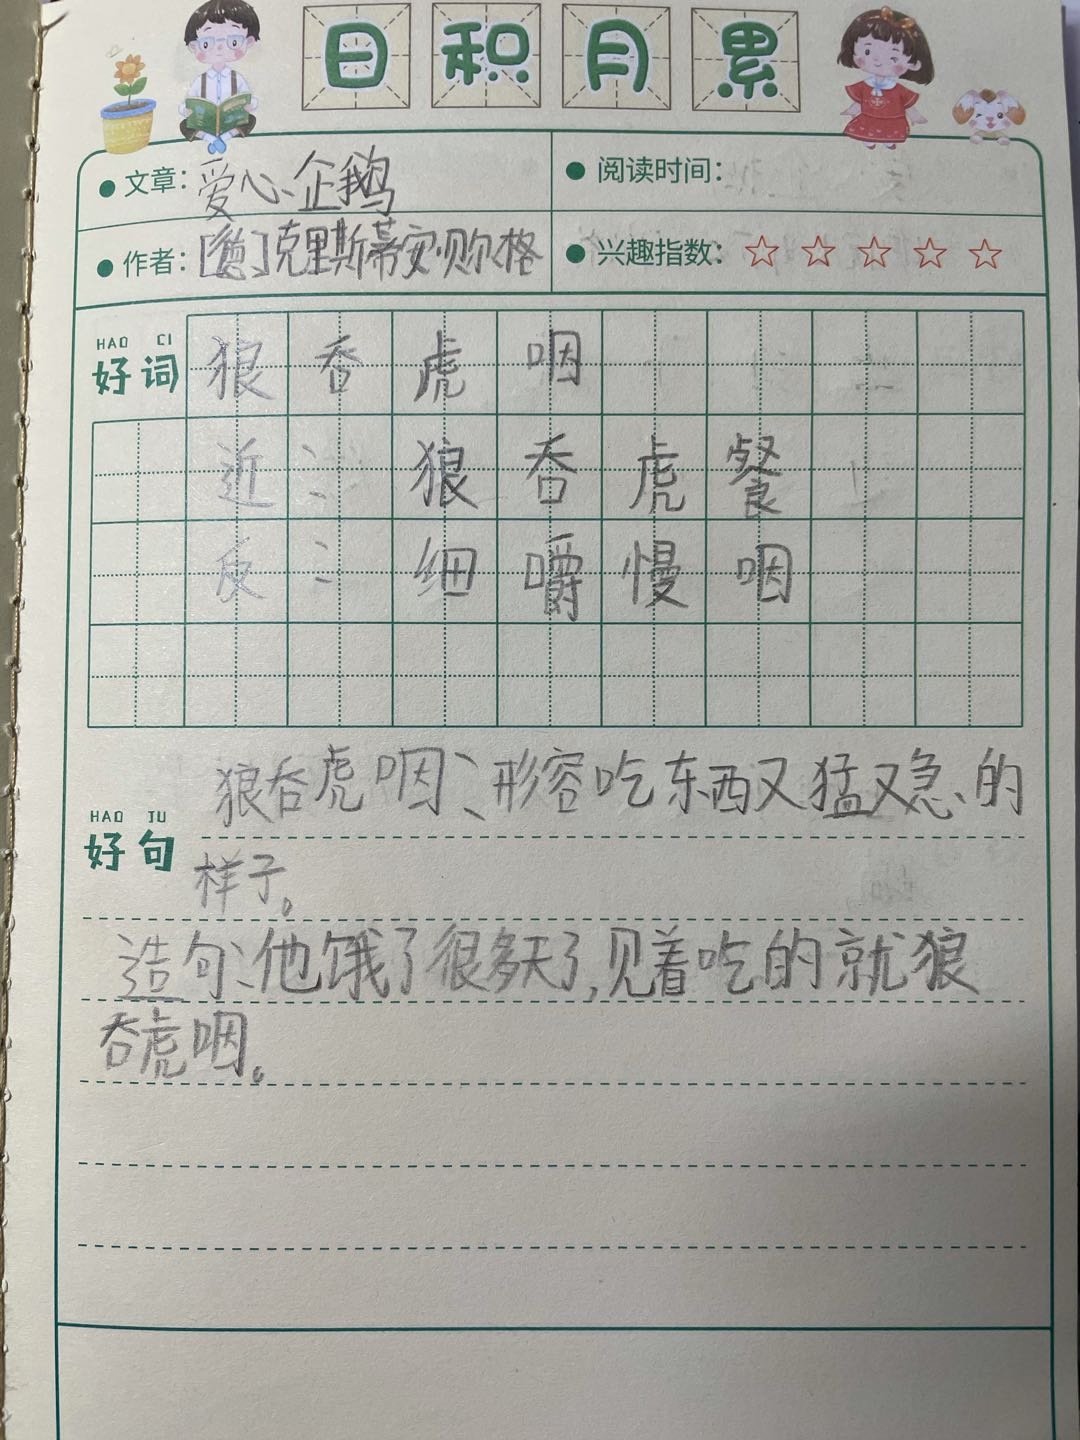 日积月累
文章：爱心企鹅
阅读时间：
作者：[德]克里斯蒂安·贝尔格
兴趣指数：☆☆☆☆☆
HAO CI
好词
狼吞虎咽
近：狼吞虎餐
反：细嚼慢咽
狼吞虎咽：形容吃东西又猛又急的
HAO JU
好句
样子。
造句：他饿了很多天了，见着吃的就狼
吞虎咽。